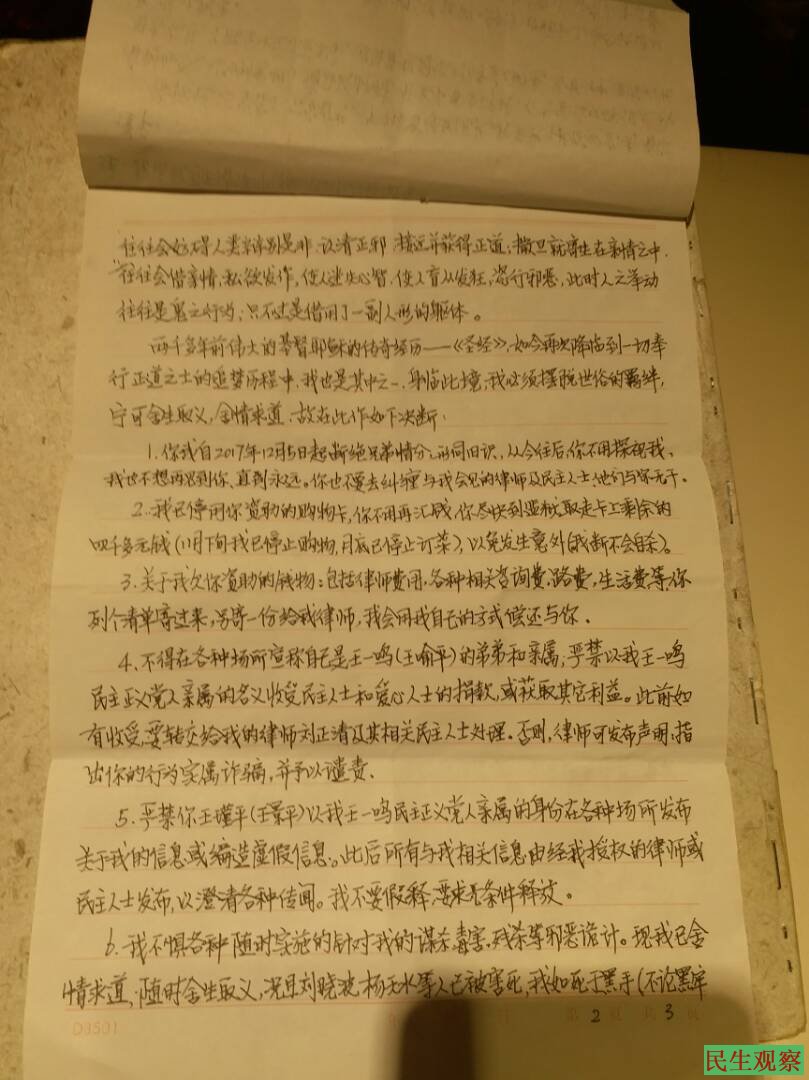 往往会妨碍人类辩别是非、认清正邪、接近并获得正道；撒旦就寄生在亲情之中.
往往会借亲情,私欲发作,使人迷失心智,使人盲从发狂,恣行邪恶,此时人之举动
往往是鬼之行为,只不过是借用了一副人形的躯体。
两千多年前伟大的基督耶稣的传奇经历——《圣经》,如今再次降临到一切奉
行正道之士的追梦历程中.我也是其中之一.身临此境,我必须摆脱世俗的羁绊,
宁可舍生取义,舍情求道.故在此作如下决断:
1.你我自2017年12月5日起断绝兄弟情分,形同旧识,从今往后,你不用探视我、
我也不想再见到你、直到永远。你也不要去纠缠与我会见的律师及民主人士,他们与你无干。
2.我已停用你资助的购物卡,你不用再汇钱,你尽快到监狱取走卡上剩余的
四千多元钱(11月下旬我已停止购物,月底已停止订菜),以免发生意外(我断不会自杀)。
3.关于我欠你资助的钱物:包括律师费用.各种相关咨询费.路费,生活费等,你
列个清单寄过来,另寄一份给我律师,我会用我自己的方式偿还与你.
4.不得在各种场所宣称自己是王一鸣(王喻平)的弟弟和亲属,严禁以我王一鸣
民主正义党人亲属的名义收受民主人士和爱心人士的捐款,或获取其它利益。此前如
有收受,要转交给我的律师刘正清及其相关民主人士处理.否则,律师可发布声明,指
出你的行为实属诈骗,并予以谴责.
5.严禁你王瑾平(王景平)以我王一鸣民主正义党人亲属的身份在各种场所发布
关于我的信息或编造虚假信息。此后所有与我相关信息由经我授权的律师或
民主人士发布,以澄清各种传闻。我不要假释,要求无条件释放。
6.我不惧各种随时实施的针对我的谋杀毒害.残杀等邪恶诡计。现我已舍
情求道,随时舍生取义,况且刘晓波.杨天水等人已被害死,我如死于黑手(不论黑牢
D3501 第2页 共3页
民生观察